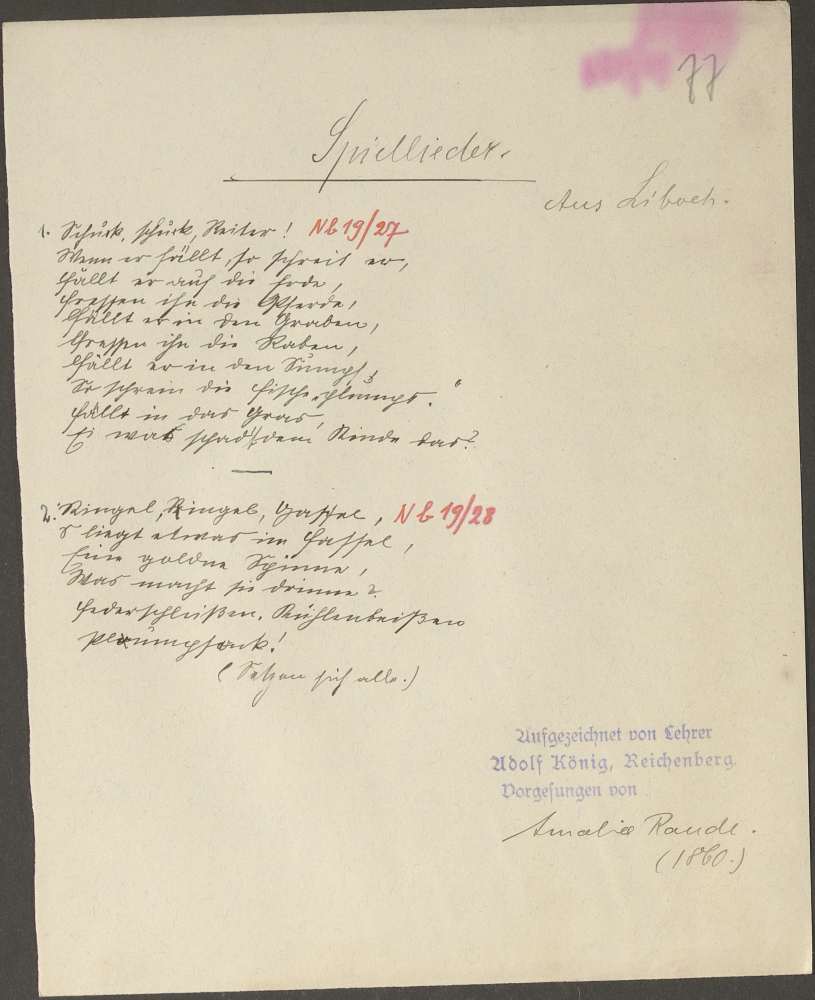 77
Spiellieder.
Aus Liboch.
1. Schuck, schuck, Reiter! Nb 19/27
Wenn er fällt, so schreit er,
Fällt er auf die Erde,
Fressen ihn die Pferde,
Fällt er in den Graben,
Fressen ihn die Raben,
Fällt er in den Sumpf,
So schrein die Fische „plumps."
Fällt in das Gras,
Ei was schad't dem Kinde das?
2. Ringel, Ringel, Gassel, Nb 19/28
S liegt etwas im Fassel,
Eine goldne Spinne,
Was macht sie drinne?
Federschleißen,
Plumpsack!
(Setzen sich alle.)
Aufgezeichnet von Lehrer
Adolf König, Reichenberg.
Vorgesungen von
Amalie Raudl.
(1860.)